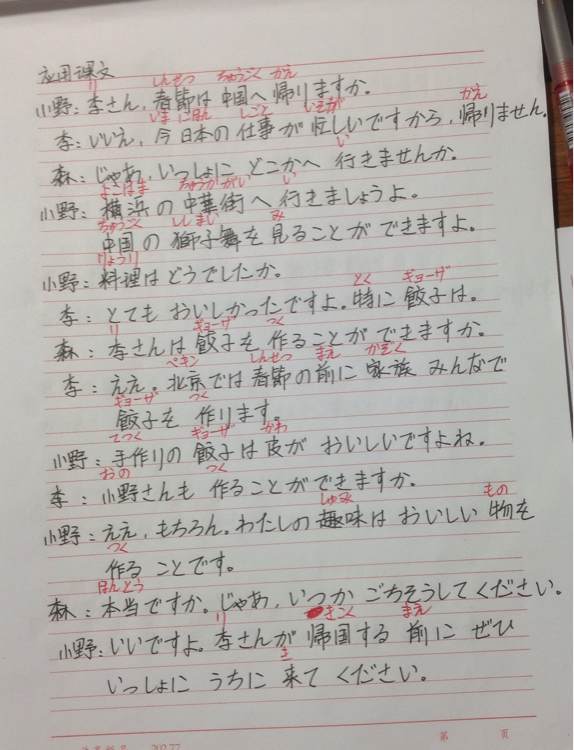 应用课文
しんせつ ちゅうごく かえ
小野：李さん、春節は中国へ帰りますか。
いま にほん しごと いそが かえ
李：いいえ、今日本の仕事が忙しいですから、帰りません。
い
森：じゃあ、いっしょに どこかへ 行きませんか。
よこはま ちゅうかがい い
小野：横浜の中華街へ行きましょうよ。
ちゅうごく ししまい み
中国の獅子舞を見ることができますよ。
りょうり
小野：料理はどうでしたか。
とく ギョーザ
李：とても おいしかったですよ。特に餃子は。
り ギョーザ つく
森：李さんは餃子を作ることができますか。
ペキン しんせつ まえ かぞく
李：ええ。北京では春節の前に 家族 みんなで
ギョーザ つく
餃子を 作ります。
てつく ギョーザ かわ
小野：手作りの餃子は皮が おいしいですよね。
おの つく
李：小野さんも 作ることができますか。
しゅみ もの
小野：ええ、もちろん。わたしの趣味は おいしい 物を
つく
作る ことです。
ほんとう
森：本当ですか。じゃあ、いつか ごちそうしてください。
り きこく まえ
小野：いいですよ。李さんが 帰国する 前に ぜひ
き
いっしょに うちに 来て ください。
第 页